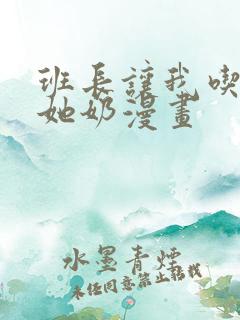 班長讓我喫
她奶漫畫
水墨青煙
未经同意禁止转载